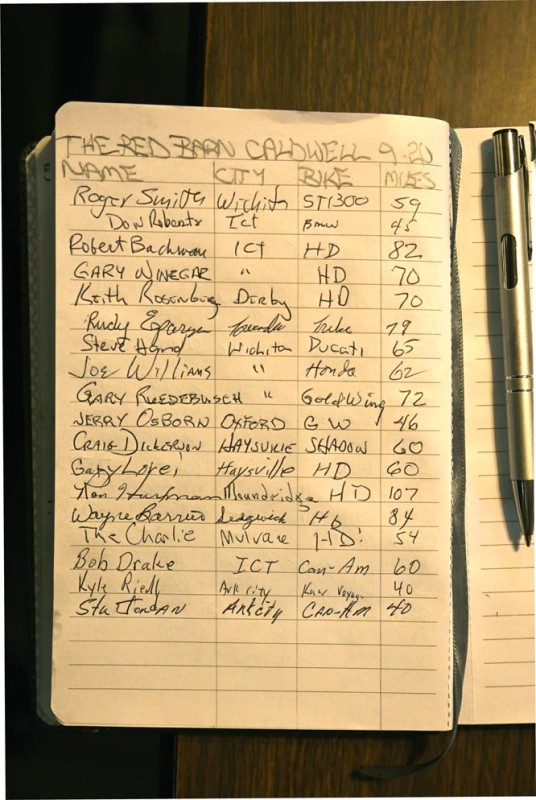 THE RED BARN CALDWELL 9-20
NAME CITY BIKE MILES
Roger Smith Wichita ST1300 59
Don Roberts Ict Bmw 45
Robert Bachman ICT HD 82
GARY WINEGAR " HD 70
Keith Rosenberg Derby HD 70
Rudy Esparza 79
Steve Hand Wichita Ducati 65
Joe Williams " Honda 62
GARY RUEDEBUSCH " GoldWing 72
JERRY OSBORN OXFORD GW 46
CRAIG DICKERSON HAYSVILLE SHADOW 60
Gary Haysville HD 60
Moundridge HD 107
Wayne Sedgwick HD 84
The Charlie Mulvane HD! 54
Bob Drake ICT Can-Am 60
Kyle Ark city 40
Stu Jordan Ark city Can-Am 40